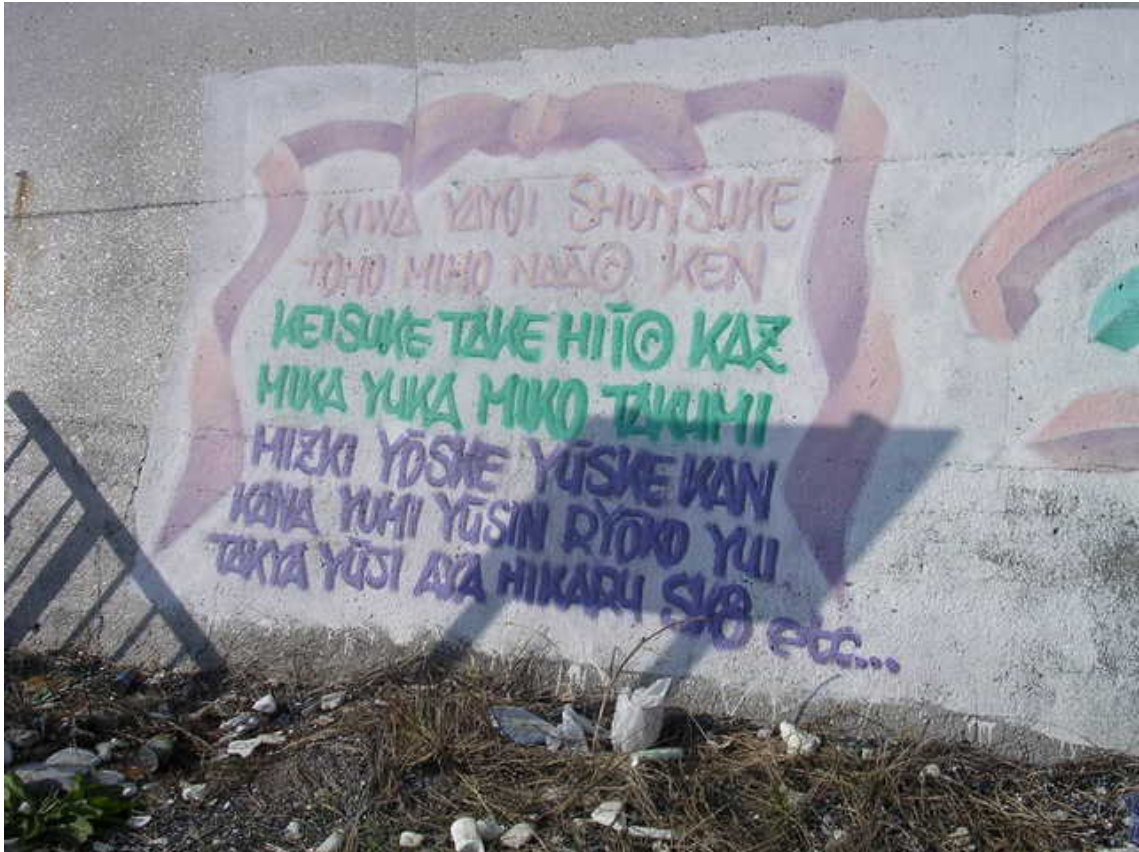 KIWA YAYOI SHUNSUKE
TOMO MIHO NAĀO KEN
KEISUKE TAKE HITO KAZ
MIKA YUKA MIKO TAKUMI
MIZKI YŌSKE YŪSKE KAN
KANA YUMI YŪSIN RYŌKO YUI
TAKYA YŪJI AYA HIKARU SHO etc...